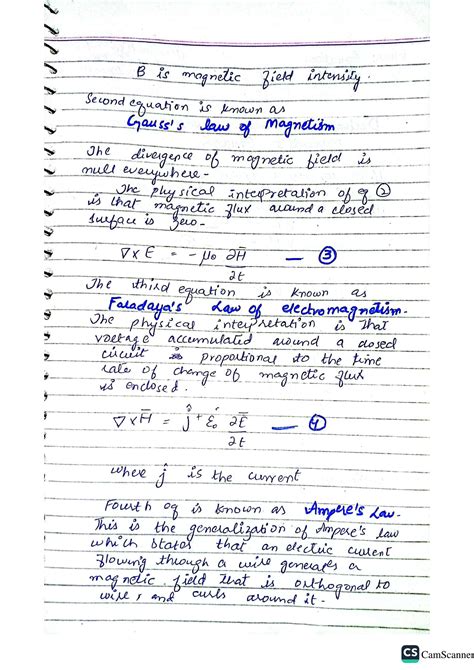 B is magnetic field intensity.
Second equation is known as
Gauss's law of Magnetism
The divergence of magnetic field is
null everywhere-
The physical interpretation of eq ②
is that magnetic flux around a closed
surface is zero-
∇×E = -μ₀ ∂H̄ — ③
∂t
The third equation is known as
Faradaya's Law of electromagnetism.
The physical interpretation is that
voltage accumulated around a closed
circuit is proportional to the time
rate of change of magnetic flux
is enclosed.
∇×H̄ = ĵ + ε₀ ∂Ē — ④
∂t
where ĵ is the current
Fourth eq is known as Ampere's Law-
This is the generalization of Ampere's law
which states that an electric current
flowing through a wire generates a
magnetic field that is orthogonal to
wire, and curls around it-
CS CamScanner